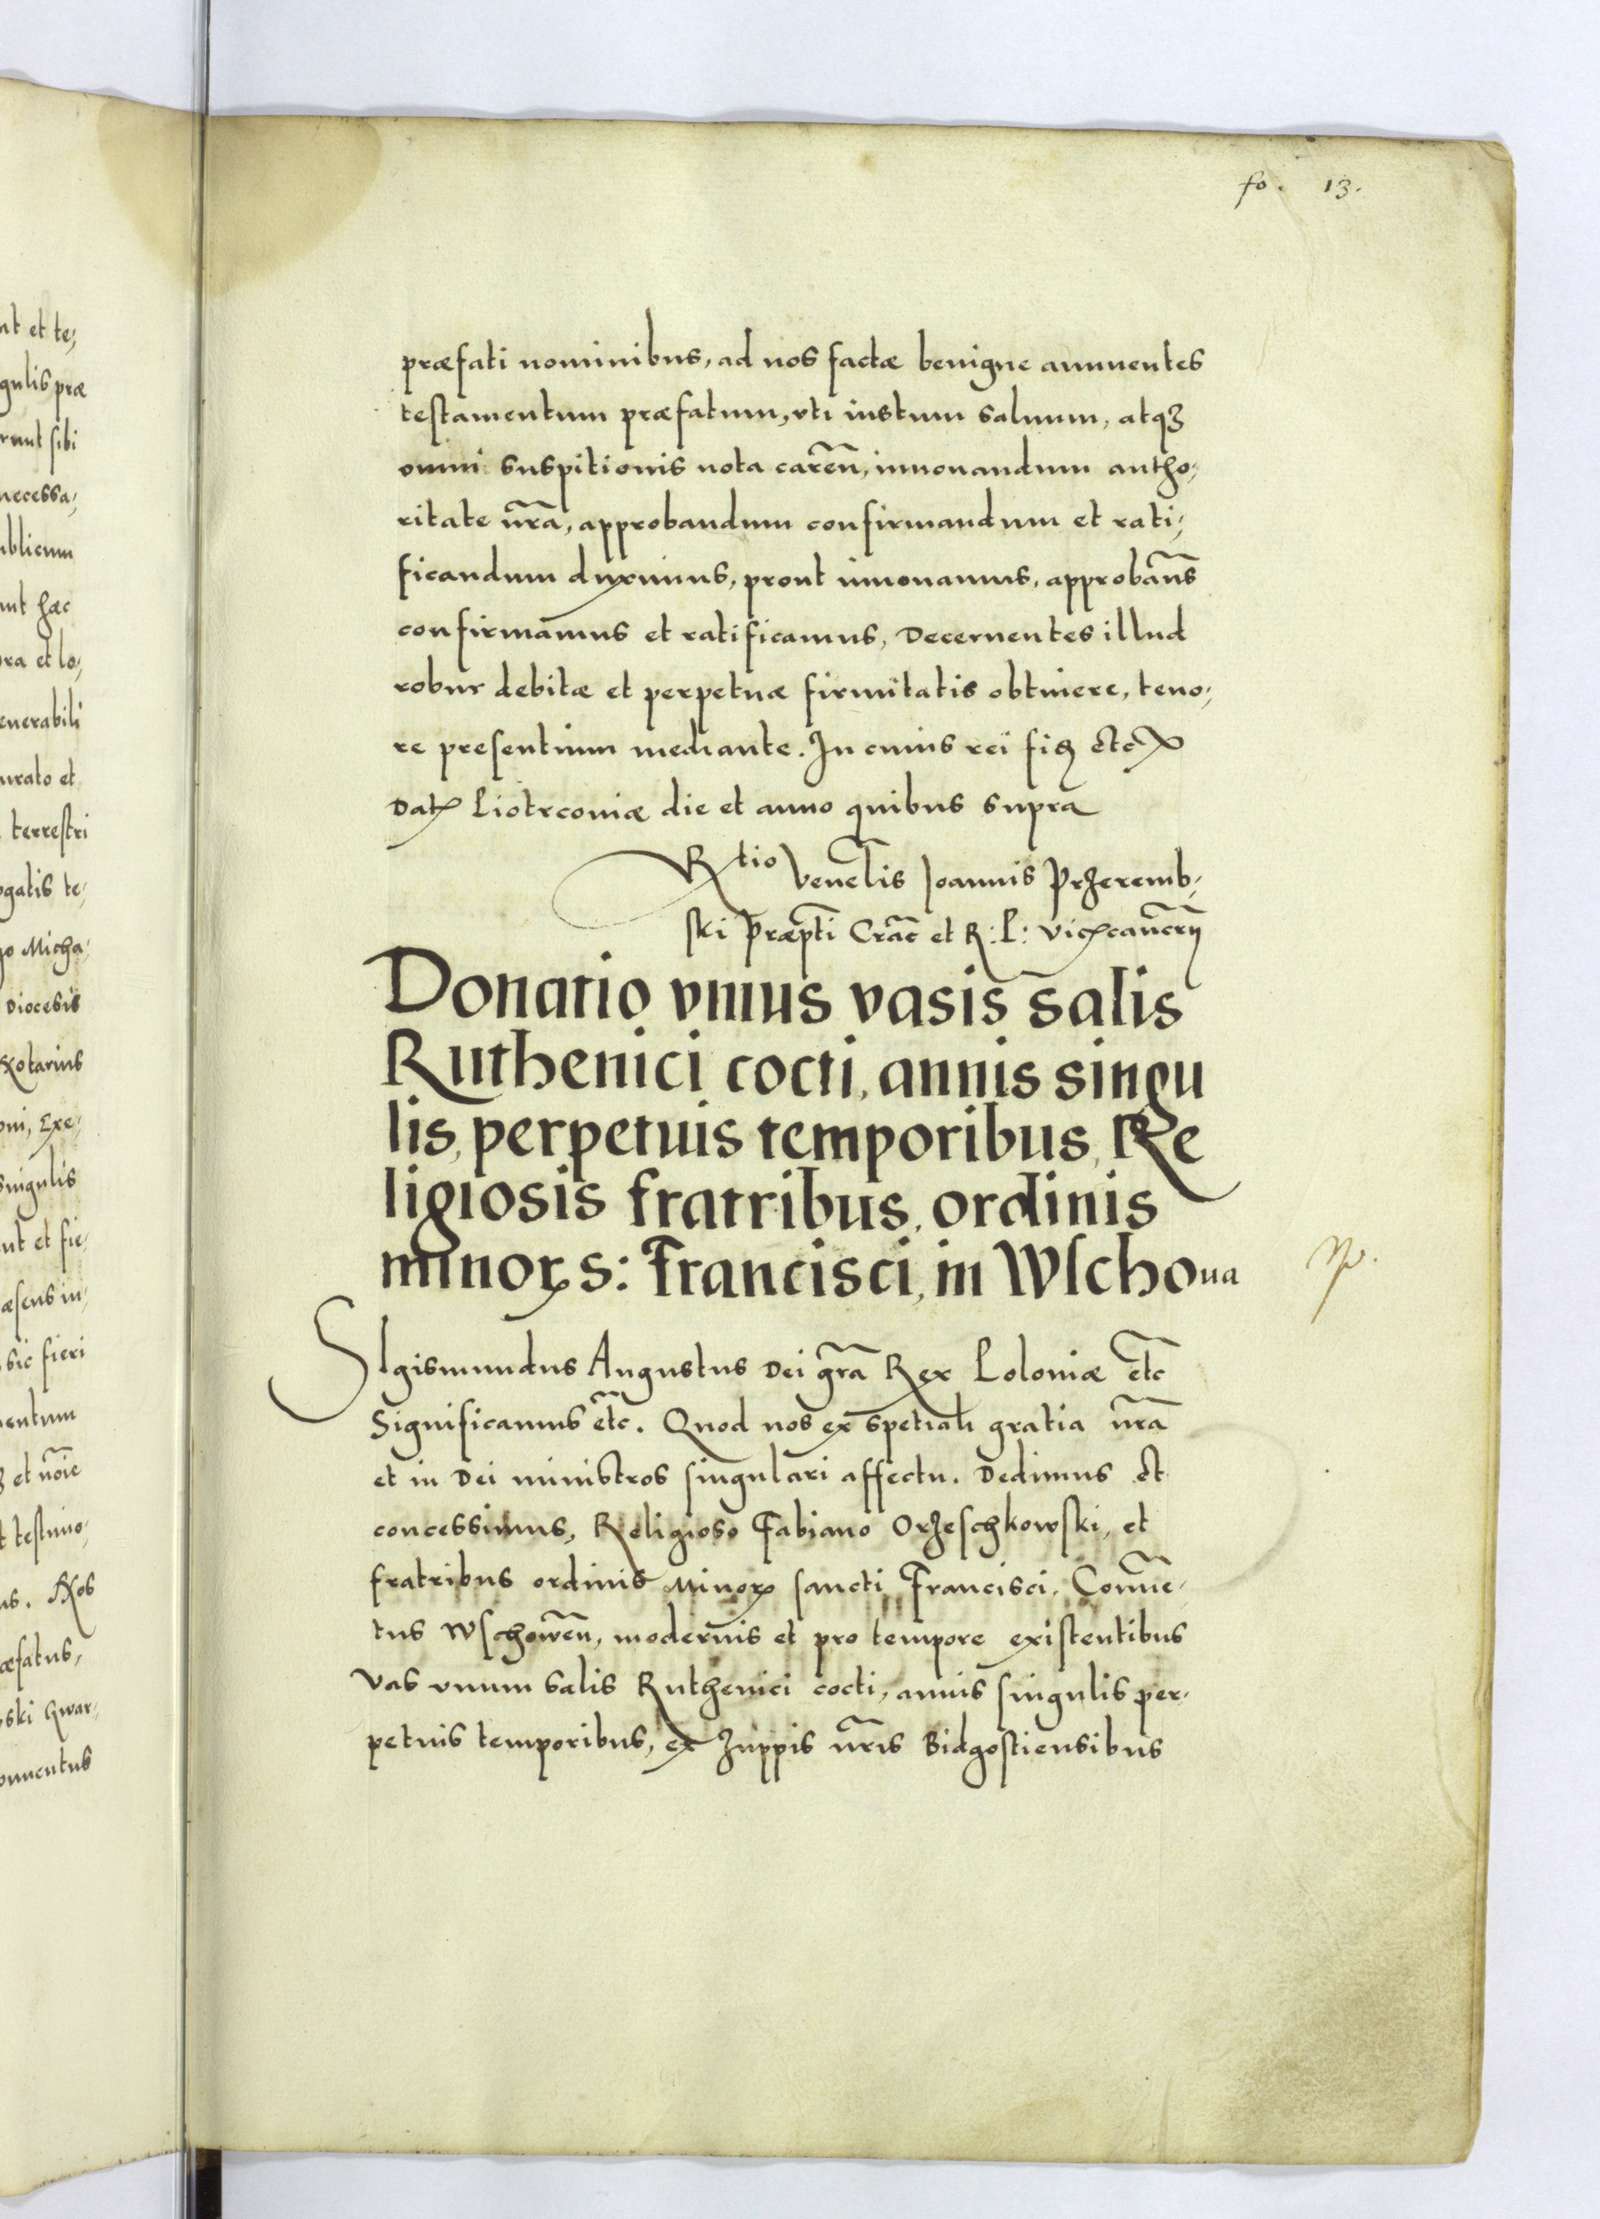 fo. 13.
præfati nominibus, ad nos factæ benigne annuentes
testamentum præfatum, vti iustum saluum, atqꝫ
omni suspitionis nota careñ, innouandum autho,
ritate nr̃a, approbandum confirmandum et rati,
ficandum duximus, prout innouamus, approbam̃s
confirmamus et ratificamus, Decernentes illud
robur debitæ et perpetuæ firmitatis obtinere, teno,
re presentium mediante. In cuius rei fiꝫ etc
Datꝭ Piotrcouiæ die et anno quibus supra
Rtio Venelis Joannis Przeremb,
ski Præpti Crac̃ et R: P: Vicꝭcancrij
Donatio vnius vasis salis
Ruthenici cocti, annis singu
lis, perpetuis temporibus, Re
ligiosis fratribus, ordinis
minorꝝ s: Francisci, in Wscho ua
SIgismundus Augustus Dei gr̃a Rex Poloniæ etc̃
Significamus etc̃. Quod nos ex spetiali gratia nr̃a
et in Dei ministros singulari affectu. Dedimus et
concessimus, Religioso Fabiano Orzeschkowski, et
fratribus ordinis Minorꝝ sancti Francisci, Conue,
tus Wschoweñ, modernis et pro tempore existentibus
Vas vnum salis Ruthenici cocti, annis singulis per,
petuis temporibus, ex zuppis nr̃is Bidgostiensibus
at et te,
gulis præ
runt sibi
necessa,
ublicum
unt hæc
ora et lo,
enerabili
urato et
terrestri
ogatis te,
Micha,
Diocesis
Notarius
oni, Exe,
Singulis
unt et fie,
æsens in,
sic fieri
mentum
et nõie
testimo,
us. Nos
æfatus,
ski Gwar,
onuentus